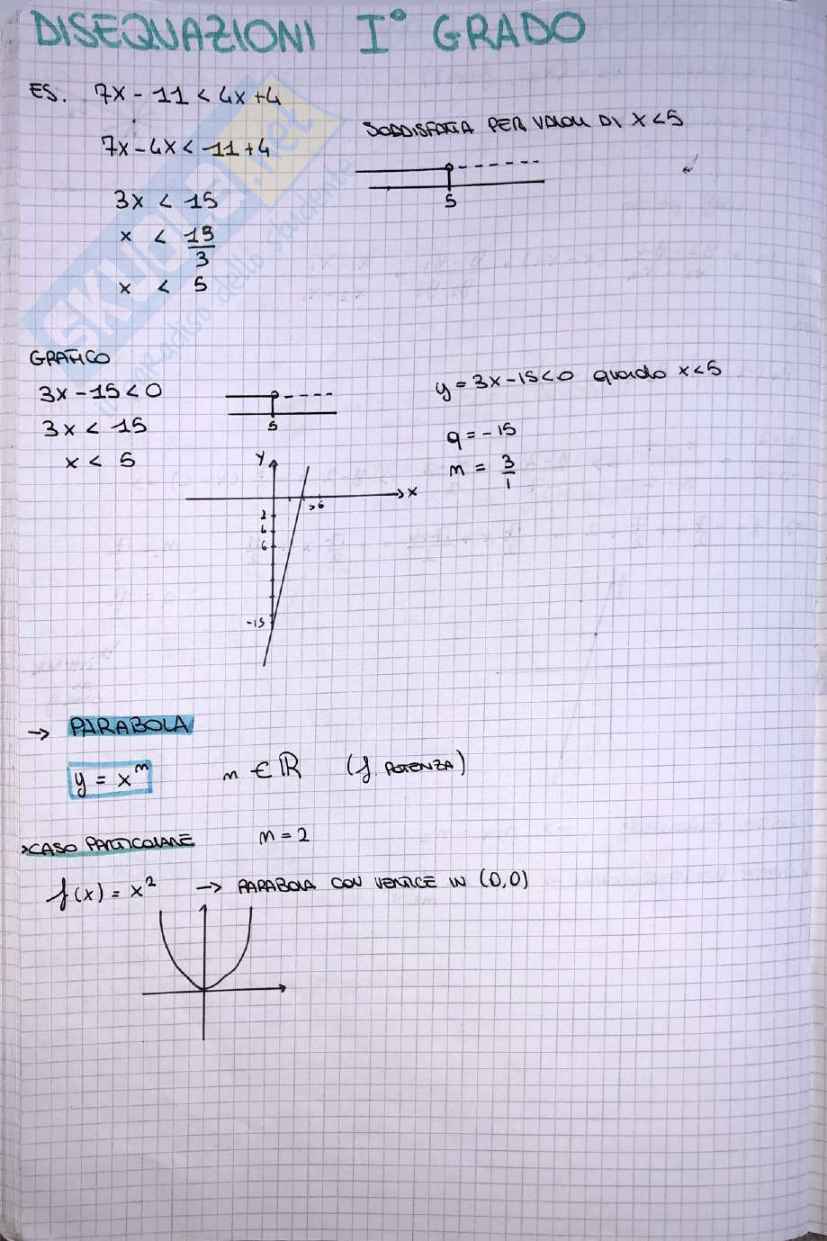 DISEQUAZIONI I° GRADO
ES. 7x - 11 < 4x + 4
7x - 4x < -11 + 4
3x < 15
x < 15/3
x < 5
SODDISFATTA PER VALORI DI x < 5
5
GRAFICO
3x - 15 < 0
3x < 15
x < 5
5
y = 3x - 15 < 0 quando x < 5
q = -15
m = 3/1
y
x
2
6
-15
→ PARABOLA
y = x^n
n ∈ ℝ (f. POTENZA)
CASO PARTICOLARE n = 2
f(x) = x² → PARABOLA CON VERTICE IN (0,0)
SKUOLA.net
il paradiso dello studente